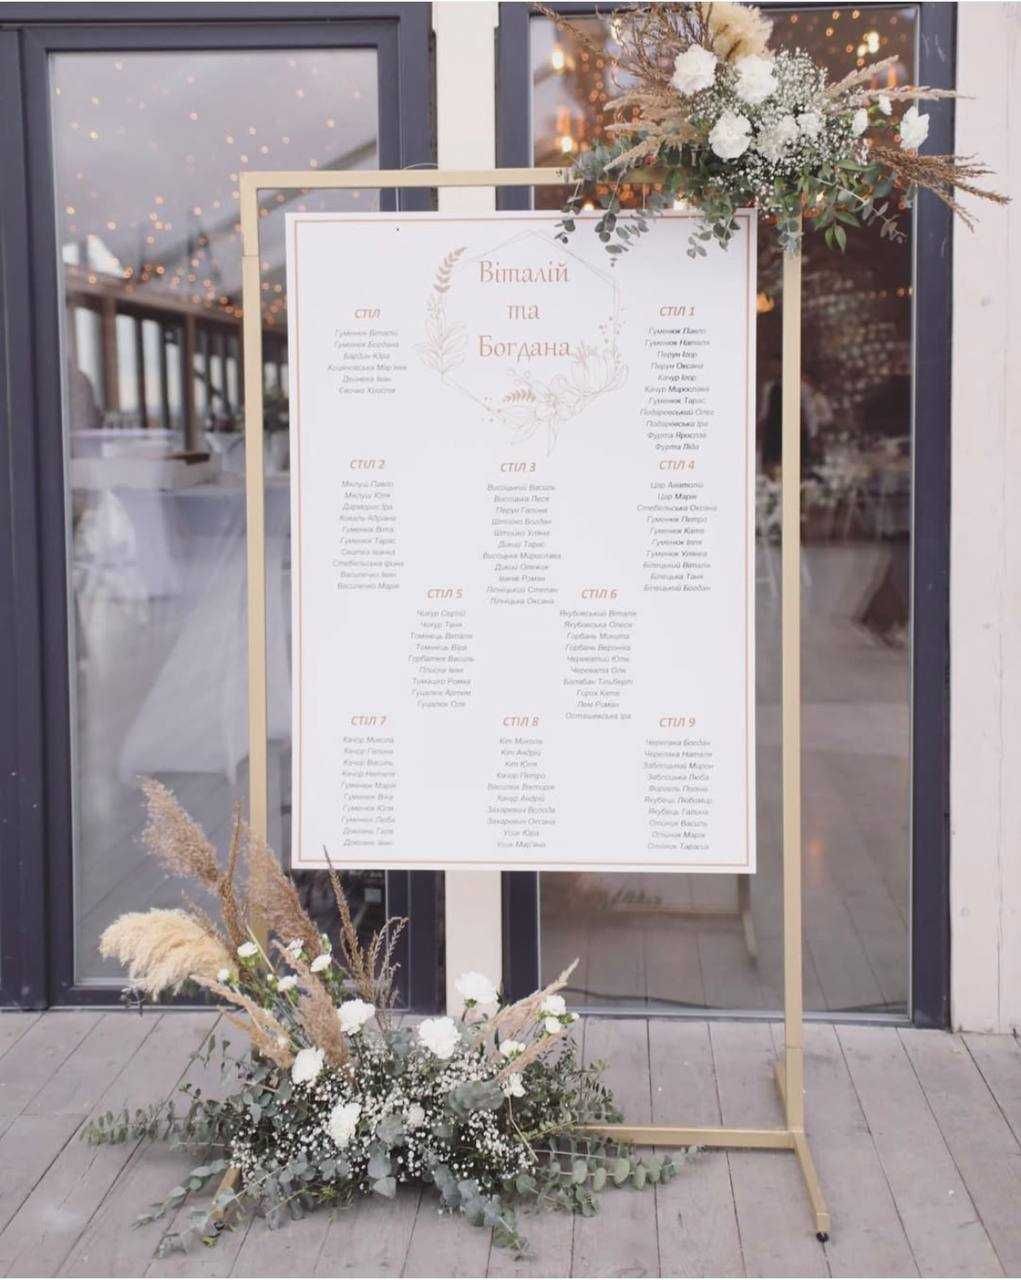 Віталій
та
Богдана
СТІЛ
Гуменюк Віталій
Гуменюк Богдана
Бардин Юра
Коцяновська Мар'яна
Іван
Христя
СТІЛ 1
Гуменюк Павло
Гуменюк Наталя
Перун Ігор
Перун Оксана
Качур Ігор
Качур Мирослава
Гуменюк Тарас
Подаревський Олег
Подаревська Іра
Фурта Ярослав
Фурта Ліда
СТІЛ 2
Мялуш Павло
Мялуш Юля
Дармораз Іра
Коваль Адріана
Гуменюк Віта
Гуменюк Тарас
Іванка
Стебельська Ірина
Василечко Іван
Василечко Марія
СТІЛ 3
Висоцький Василь
Висоцька Леся
Перун Галина
Штойко Богдан
Штойко Уляна
Дикий Тарас
Висоцька Мирослава
Дикий
Іванів Роман
Пілецький Степан
Пілецька Оксана
СТІЛ 4
Цар Анатолій
Цар Марія
Стебельська Оксана
Гуменюк Петро
Гуменюк Катя
Гуменюк Ілля
Гуменюк Уляна
Білецький Віталік
Білецька Таня
Білецький Богдан
СТІЛ 5
Чогур Сергій
Чогур Таня
Томінець Віталій
Томінець Віра
Горбатюк Василь
Іван
Томашко Ромка
Гуцалюк Артем
Гуцалюк Оля
СТІЛ 6
Якубовський Віталік
Якубовська Олеся
Горбань Микита
Горбань Вероніка
Череватий Юлік
Черевата Оля
Балабан Тільберт
Горох Катя
Лем Роман
Осташевська Іра
СТІЛ 7
Качор Микола
Качор Галина
Качор Василь
Качор Наталя
Гуменюк Марія
Гуменюк Віка
Гуменюк Юля
Гуменюк Люба
Довгань Галя
Довгань Іван
СТІЛ 8
Кіт Микола
Кіт Андрій
Кіт Юля
Качор Петро
Василів Вікторія
Качур Андрій
Захаревич Володя
Захаревич Оксана
Усик Юра
Усик Мар'яна
СТІЛ 9
Черепаха Богдан
Черепаха Наталя
Заблоцький Мирон
Заблоцька Люба
Якубець Любомир
Якубець Галина
Олійник Василь
Олійник Марія
Олійник Тарасій